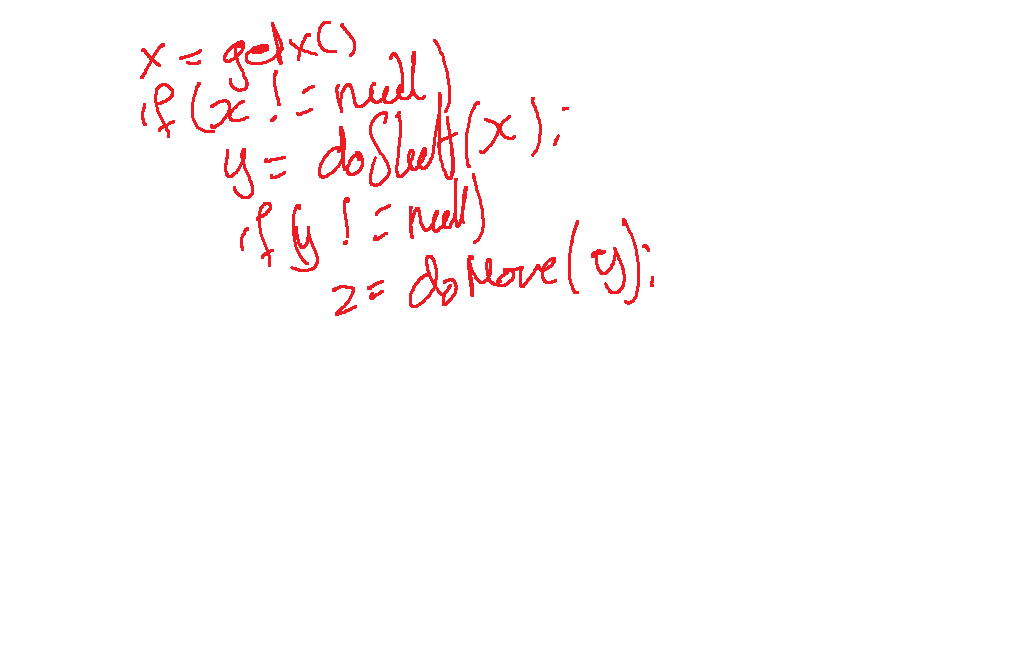 x = getx()
if (x != null)
y = doStuff(x);
if (y != null)
z = doMore(y);